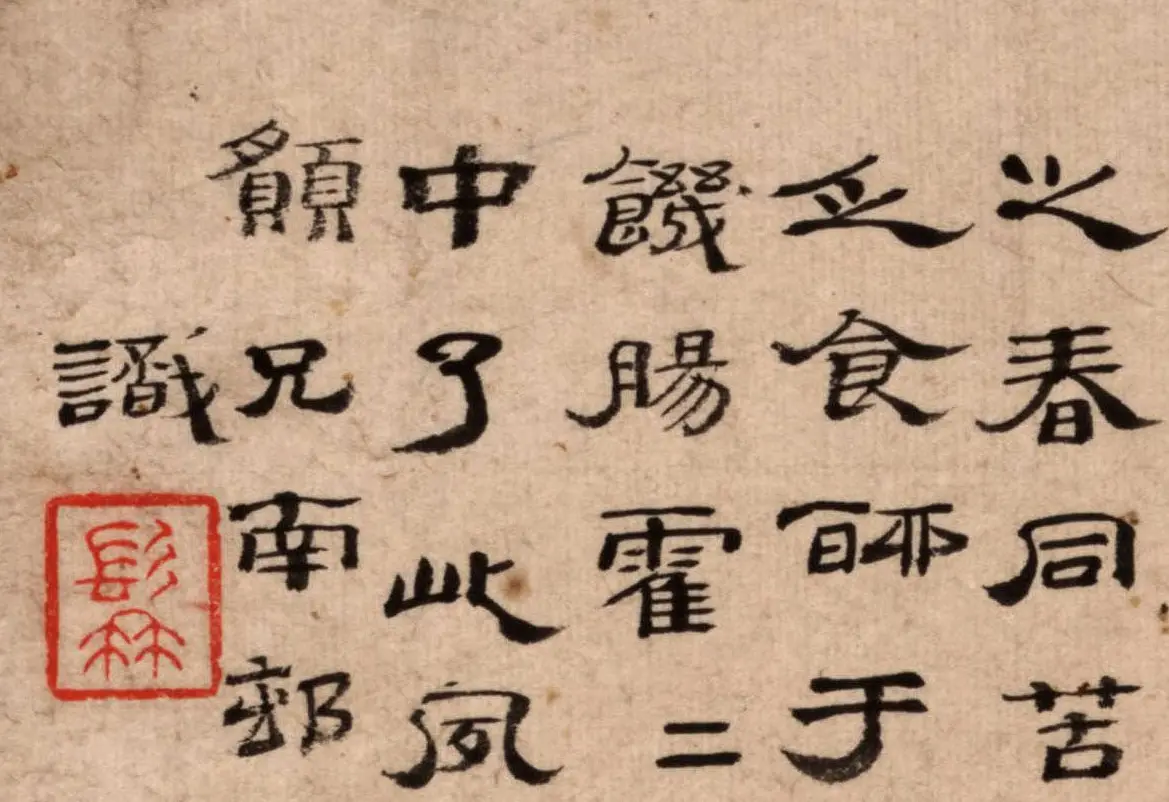 之春同苦
乏食師于
饑腸霍二
中了此夙
願兄南郭
識